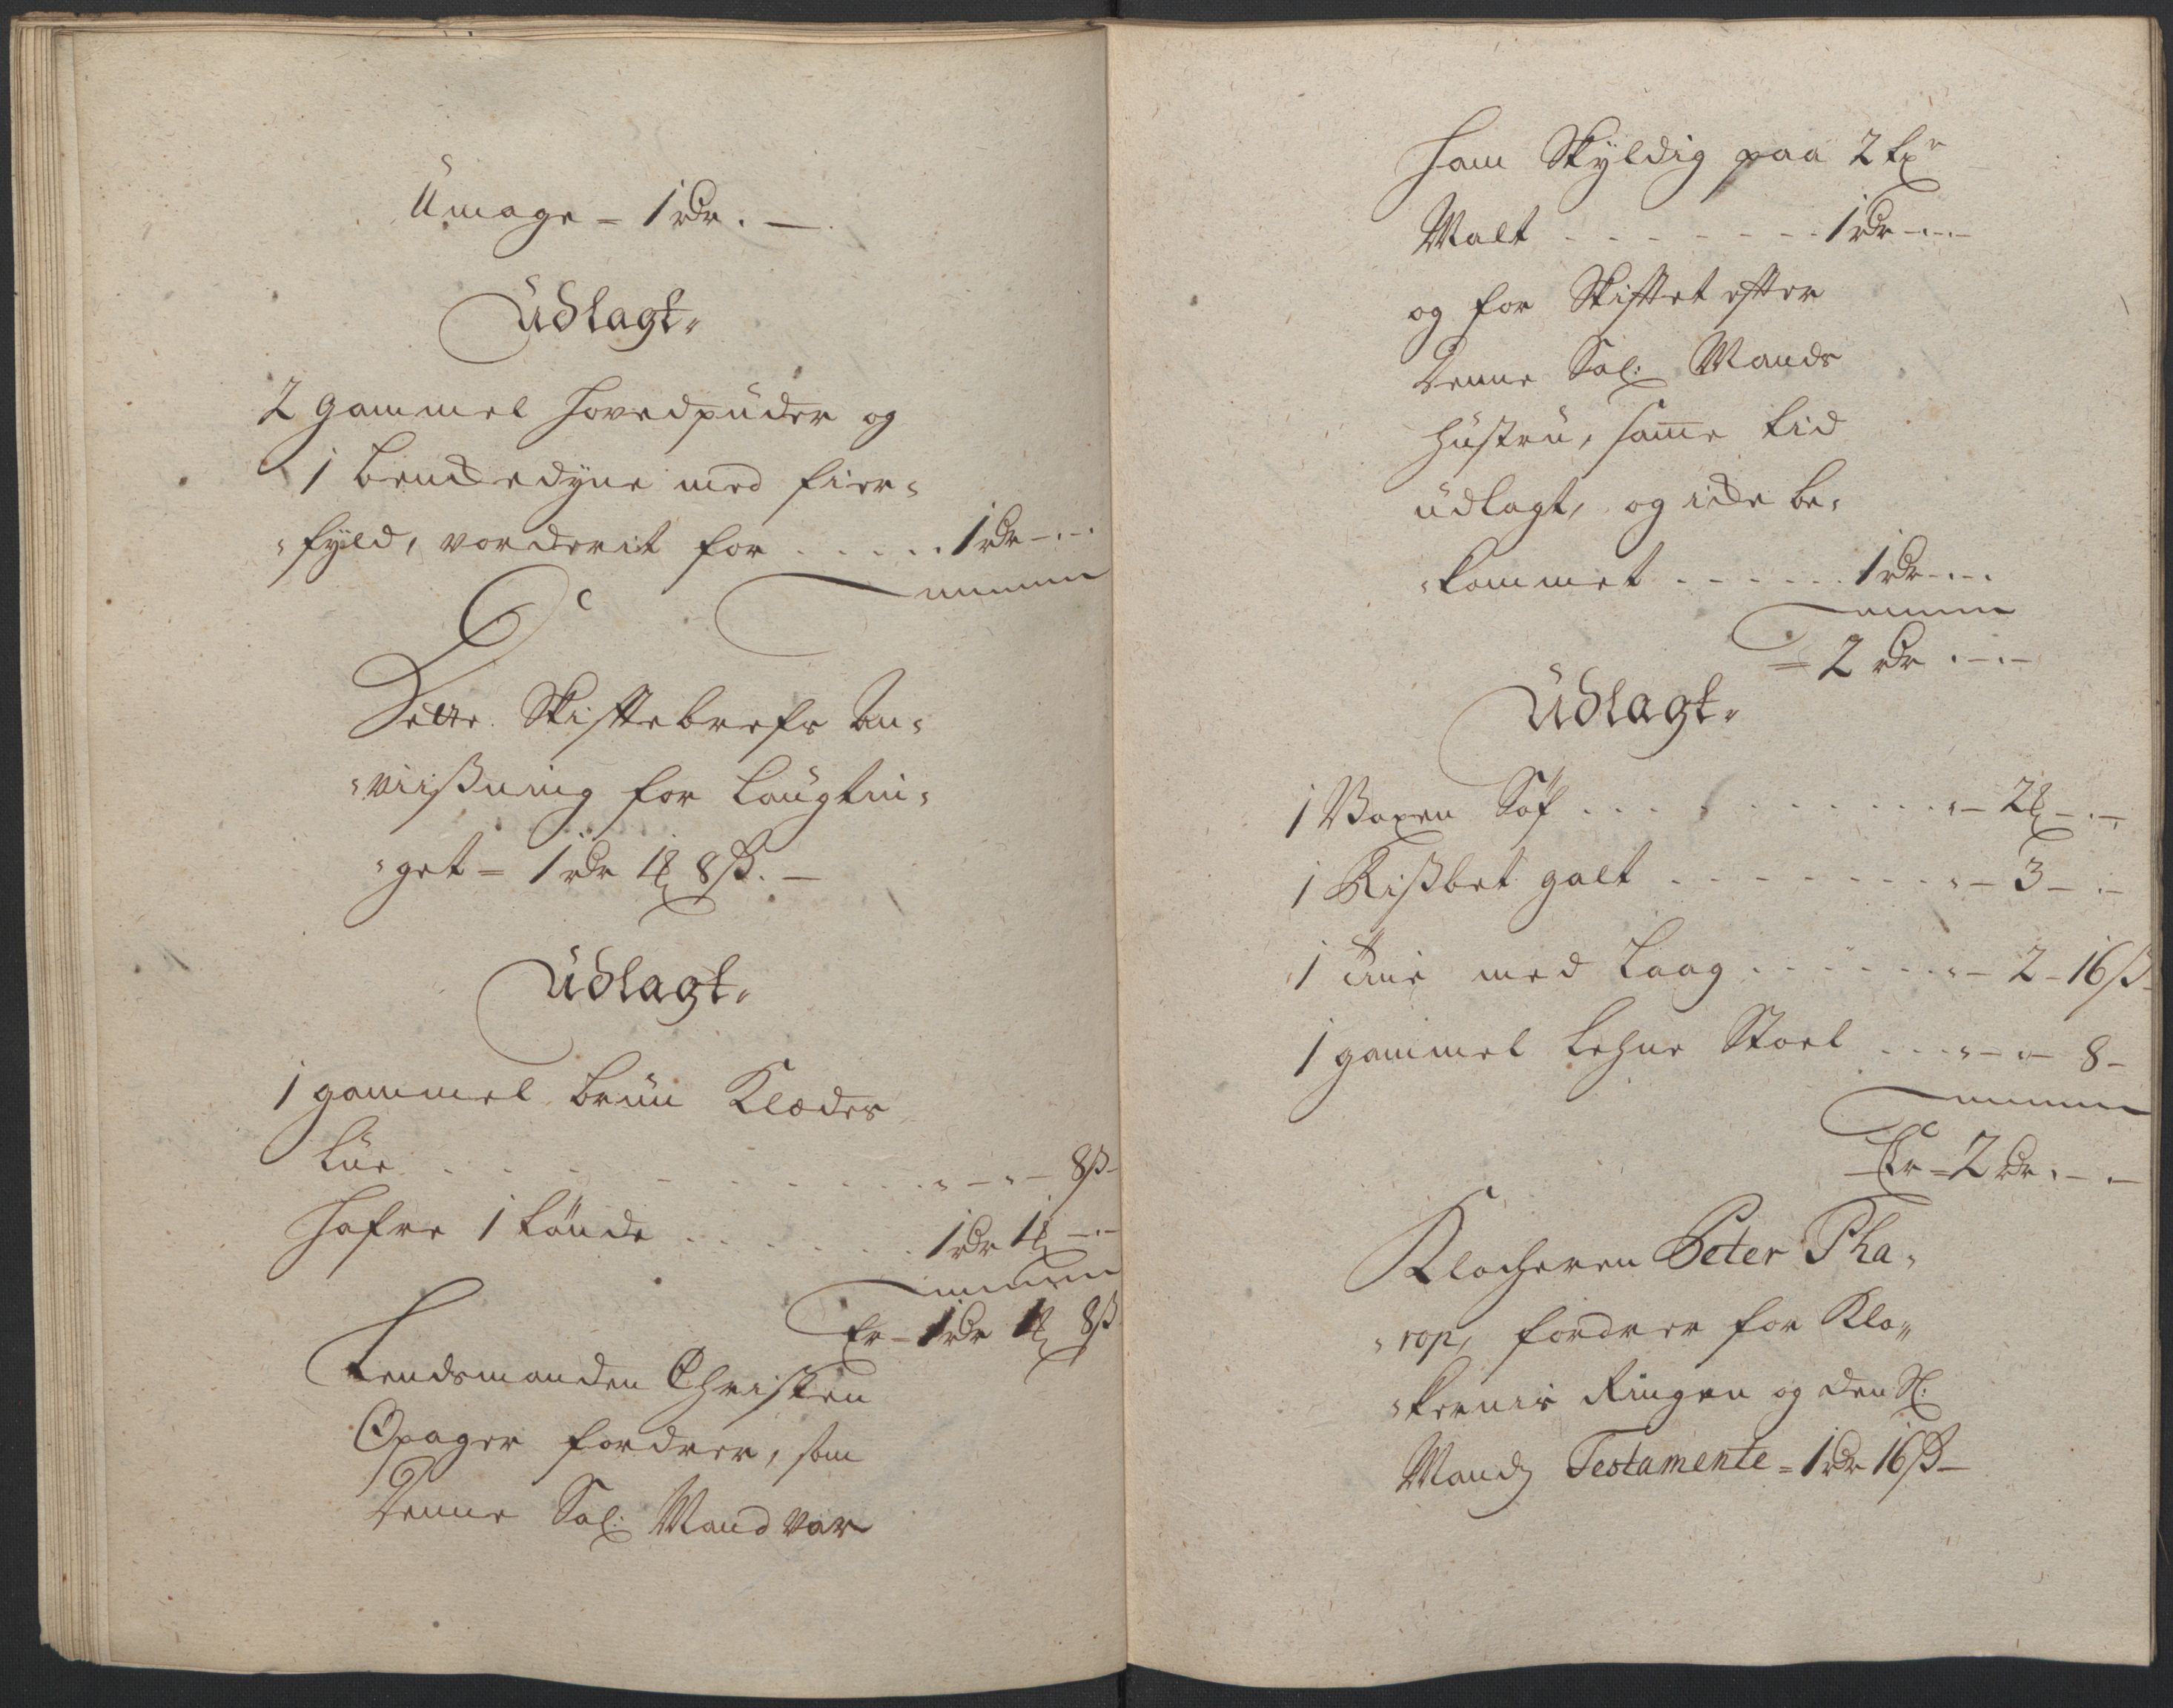 Umage = 1 rdr. —
Udlagt.
2 gammel Hovedpuder og
1 benckedyne med fier=
=fyld, vorderit for ..... 1 rdr — . —
Dette Skiftebrefs An=
=viißning for Laugtin=
=get = 1 rdr 1 ℔ 8 ß. —
Udlagt.
1 gammel brun Klædes
Lue . . . . . . . " — " — 8 ß —
Hafre 1 tønde . . . . . . 1 rdr 1 ℔ — . —
Er — 1 rdr 1 ℔ 8 ß
Lendsmanden Christen
Opager fordrer, som
denne Sal: Mand var
ham Skyldig paa 2 tp^r
Malt . . . . . . . 1 rdr — . —
og for Skiftet efter
denne Sal: Mands
Hustru, samme tid
udlagt, og icke be=
=kommet . . . . . . 1 rdr — . —
= 2 rdr . — . —
Udlagt.
1 Voxen Søf . . . . . . . . " — 2 ℔ — . —
1 Kißbet galt . . . . . . . " — 3 — . —
1 med Laag . . . . . . " — 2 — 16 ß —
1 gammel Lehne Stoel . . . " — " — 8 —
Er = 2 rdr . — . —
Klocheren Peter Pha=
=rop, fordrer for Klo=
=kernis Ringen og den Sl:
Mands Testamente = 1 rdr 16 ß —